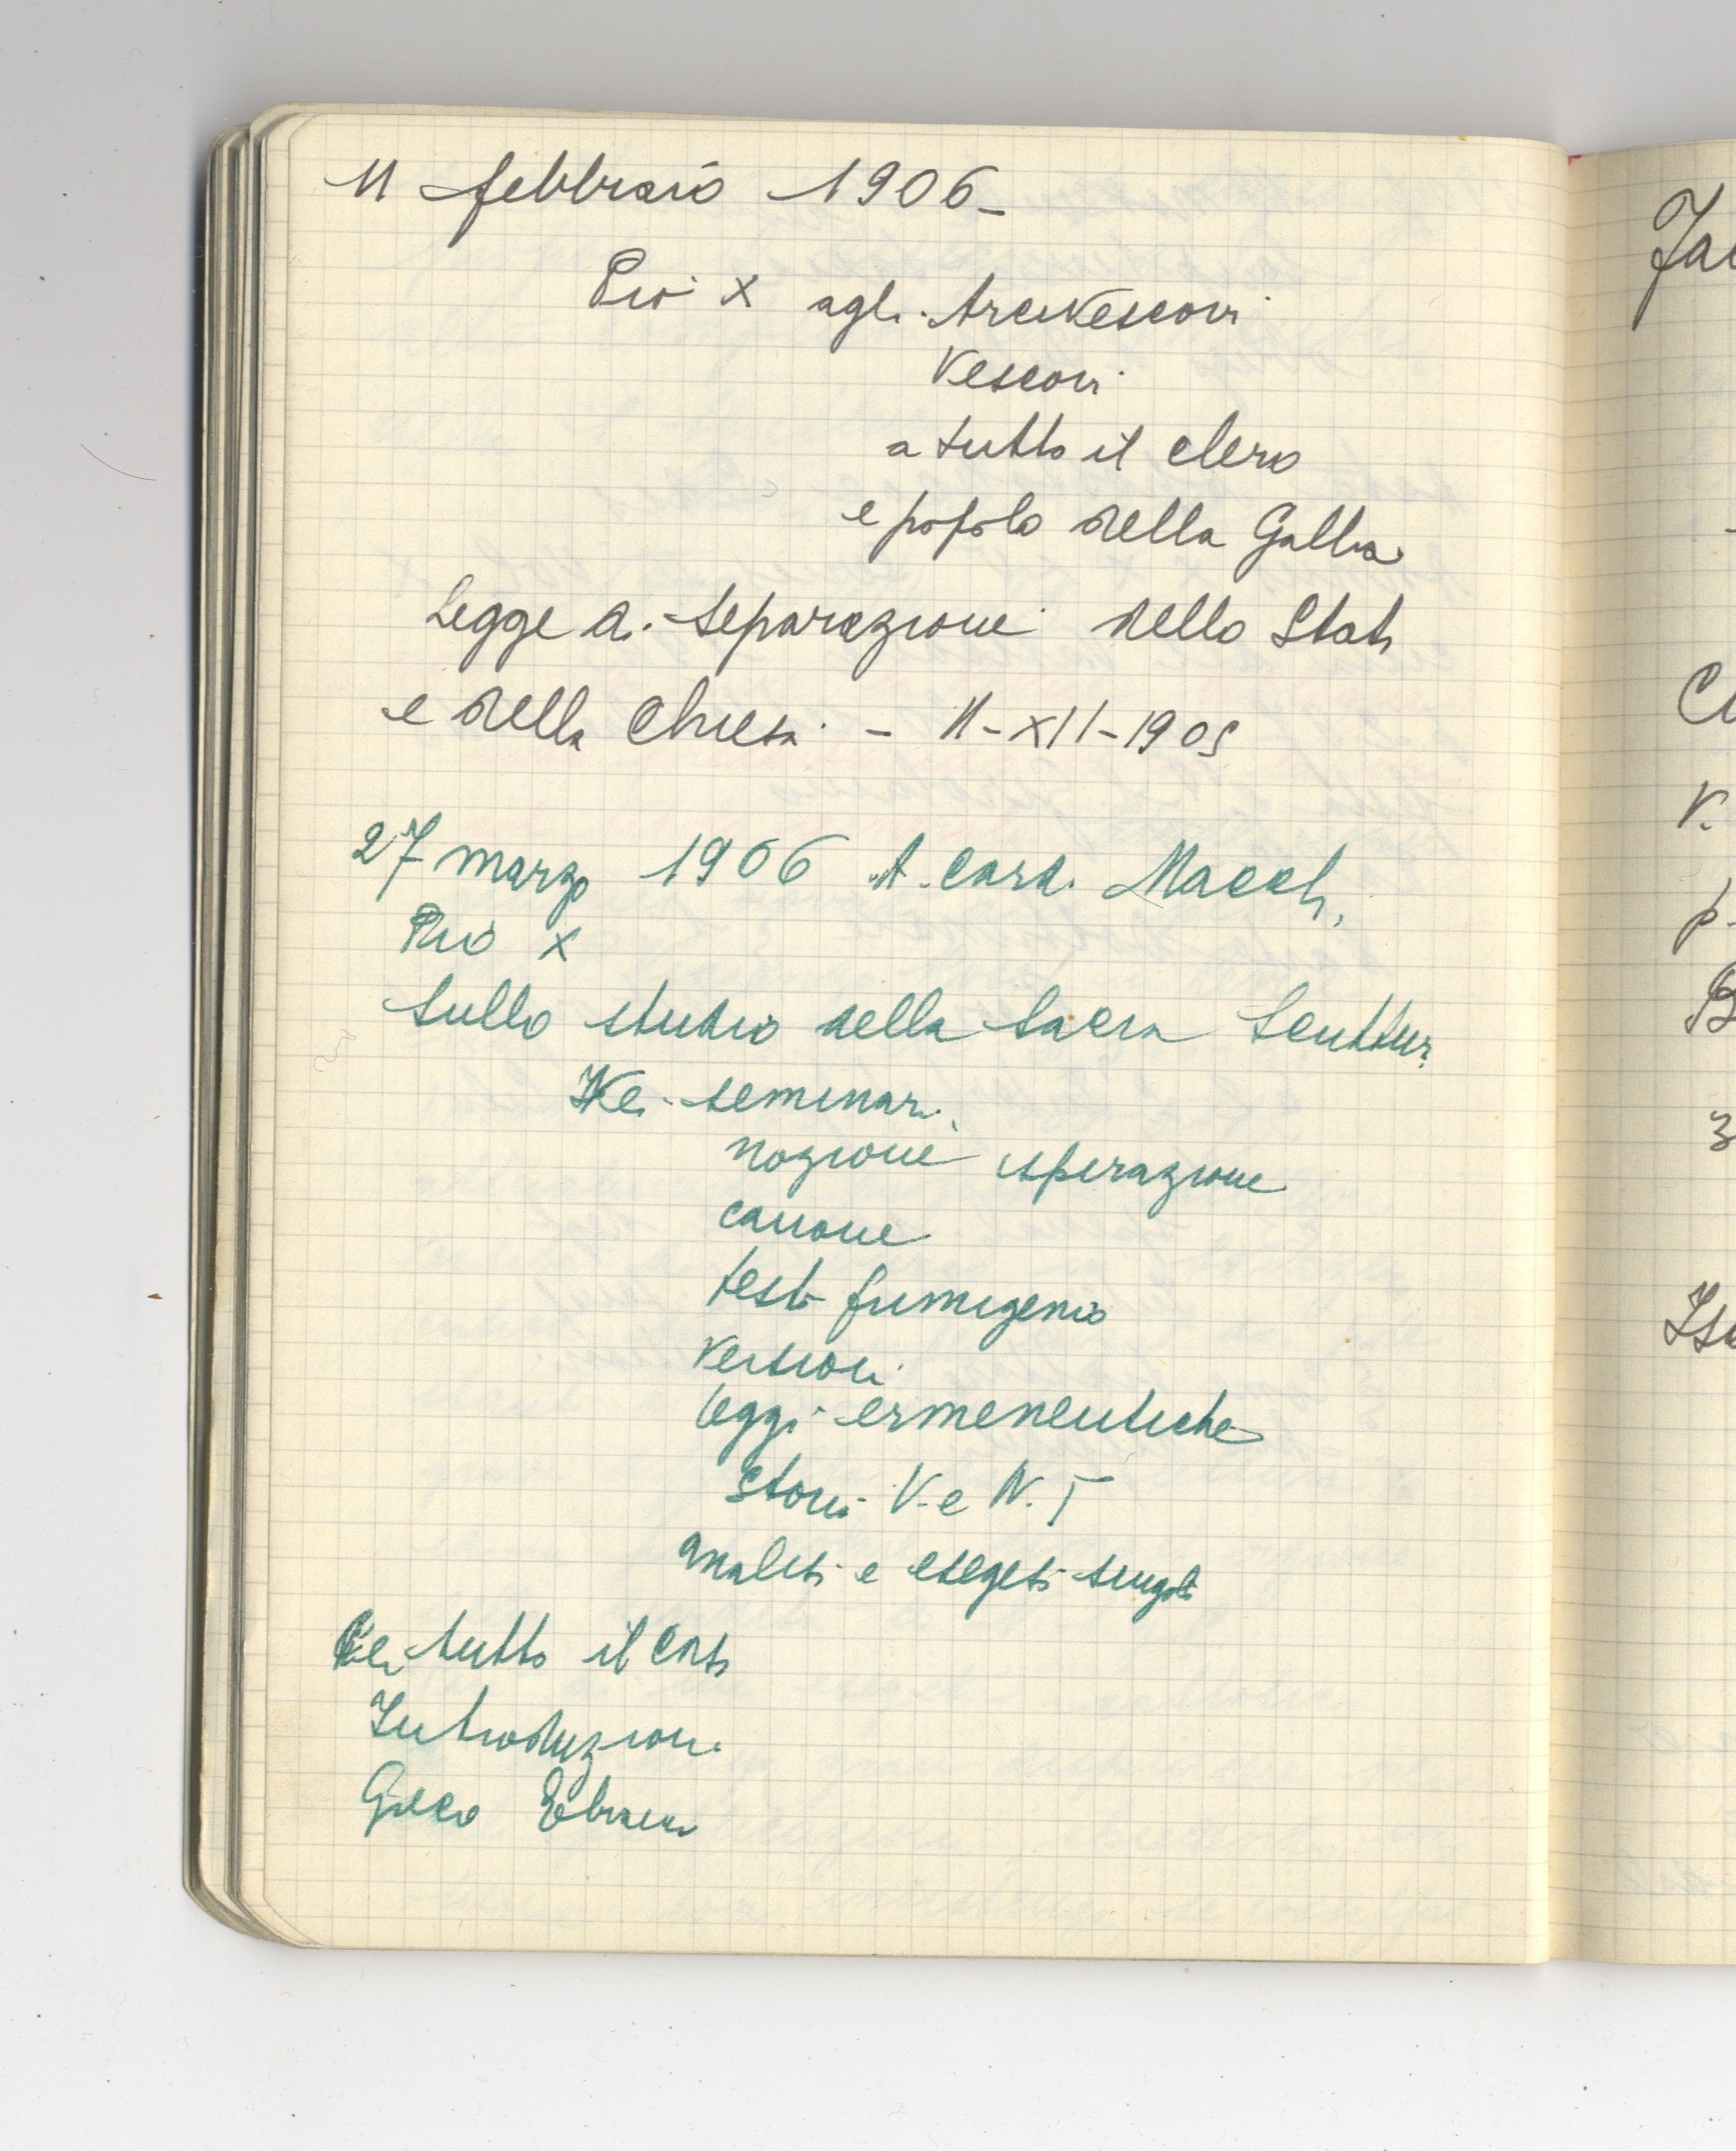 11 febbraio 1906-
Pio X agli Arcivescovi
Vescovi
a tutto il clero
e popolo della Gallia
Legge di separazione dello Stato
e della Chiesa - 11-XII-1905
27 marzo 1906 A card.
Pio X
sullo studio della Sacra Scrittura
Nei seminari
nozione ispirazione
canone
testo primigenio
versioni
leggi ermeneutiche
Storia V. e N. T
analisi e esegesi singoli
Per tutto il corso
Introduzione
Greco Ebraico